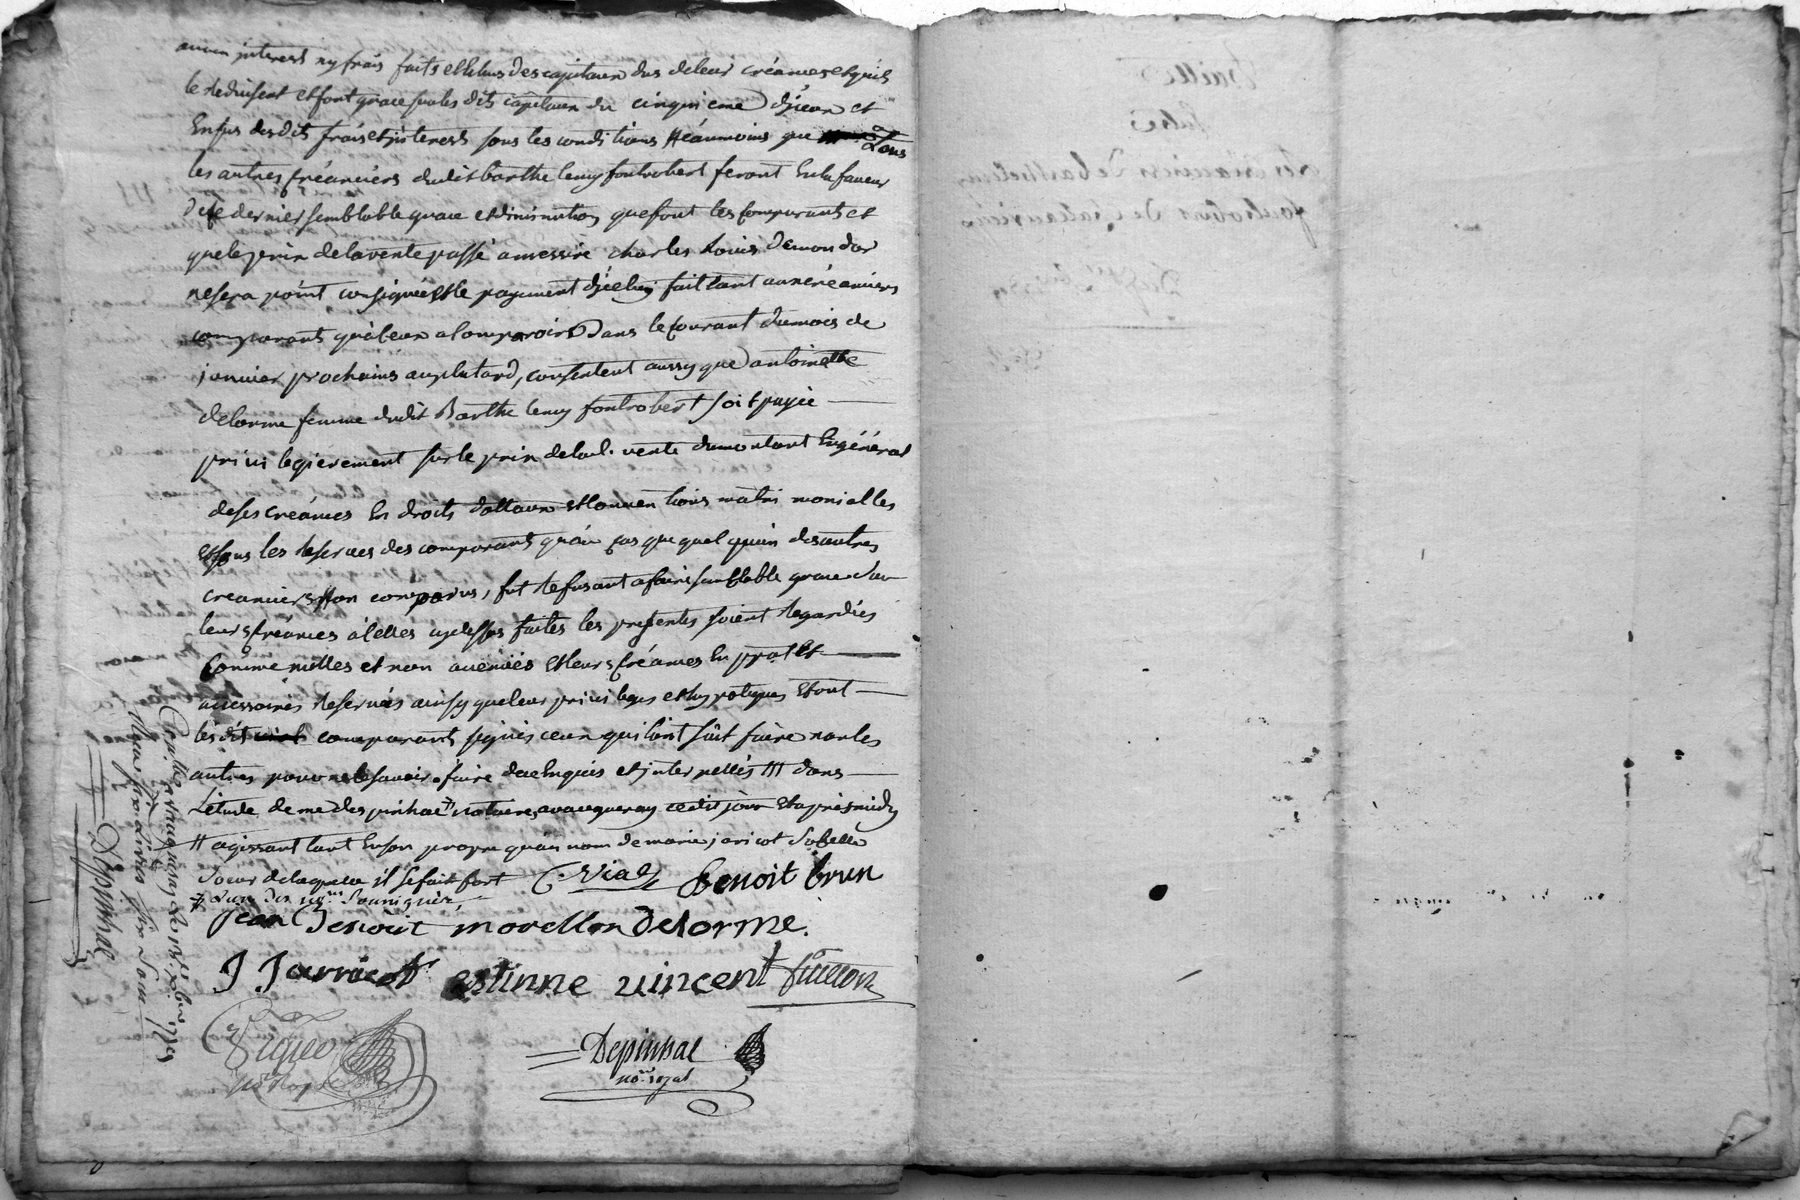 aucun interest ny frais faits et the des capitaux dus de leur créances et qu'ils
le réduisent et font grace sur les dits capitaux du cinquieme d'jceux et
En sus des dits frais et jnterests sous les conditions Neanmoins que tous
les autres créanciers dudit barthelemy fontrobert feront En la faveur
de ce dernier semblable grace et diminution que font les comparants et
que le prix de la vente passé a messire charles Louis demondor
ne sera point consignée Et le payement d'jcelluy fait tant aux créanciers
comparants qu'à ceux a comparoir dans le courant du mois de
janvier prochains au plutard, consentent aussy que antoinette
delorme femme dudit Barthelemy fontrobert soit payée
privilegierement sur le prix de lad. vente du montant En général
de ses créances En droits dottaux Et conventions matrimonialles
Et sous les reserves des comparants qu'au cas que quelqu'un des autres
creanciers Non comparus, fut refusant a faire semblable grace sur
leurs créances à celles cy dessus faites les presentes soient regardées
Comme nulles et non avenües Et leurs créances En ppal Et
accessoires reservés ainsy que leur privileges et hypoteques Et ont
les dits comparants signés ceux qui l'ont sçût faire non les
autres pour ne le savoir faire de ce Enquis et jnterpellés dans
L'étude de me depinhac notaire a vaugneray ce dit jour Et après midy
# agissant tant En son propre qu'au nom de marie jaricot sa belle
soeur de laquelle il se fait fort C. Vial Benoit brun
# L'un des nores. soussignés
jean Benoit morellon delorme.
J Jarricot estinne vincent Guillon
Vigne
no.re Royal
Depinhac
no.re royal
Con.lé a vaugneray Le 15 xbre 1779
Depinhac